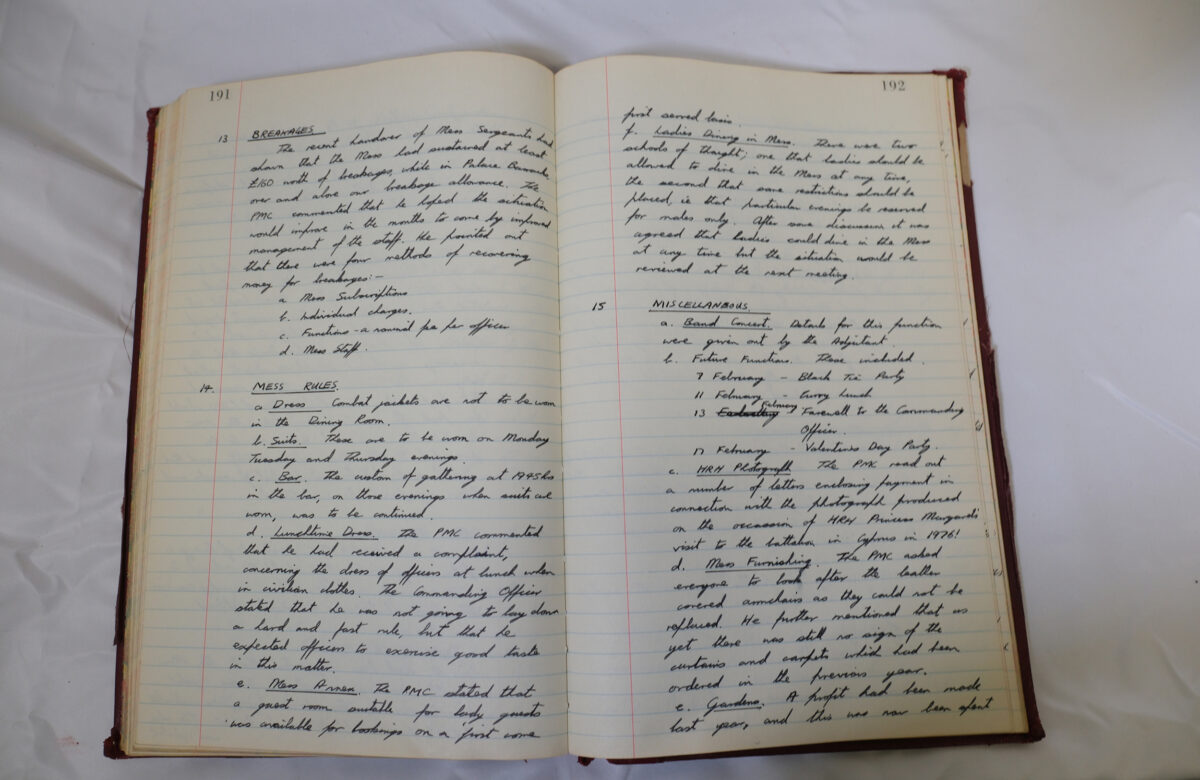 191
13 BREAKAGES
The recent handover of Mess Sergeants had
shown that the Mess had sustained at least
£160 worth of breakages, while in Palace Barracks,
over and above our breakage allowance. The
PMC commented that he hoped the situation
would improve in the months to come by improved
management of the staff. He pointed out
that there were four methods of recovering
money for breakages:-
a. Mess Subscriptions
b. Individual charges.
c. Functions - a nominal fee per officer
d. Mess Staff.
14. MESS RULES.
a. Dress Combat jackets are not to be worn
in the Dining Room.
b. Suits. These are to be worn on Monday
Tuesday and Thursday evenings.
c. Bar. The custom of gathering at 1945 hrs
in the bar, on those evenings when suits are
worn, was to be continued.
d. Lunchtime Dress. The PMC commented
that he had received a complaint,
concerning the dress of officers at lunch when
in civilian clothes. The Commanding Officer
stated that he was not going to lay down
a hard and fast rule, but that he
expected officers to exercise good taste
in this matter.
e. Mess Annex. The PMC stated that
a guest room suitable for lady guests
was available for bookings on a first come
192
first served basis.
f. Ladies Dining in Mess. There were two
schools of thought; one that ladies should be
allowed to dine in the Mess at any time,
the second that some restrictions should be
placed, ie that particular evenings be reserved
for males only. After some discussion it was
agreed that ladies could dine in the Mess
at any time but the situation would be
reviewed at the next meeting.
15 MISCELLANEOUS.
a. Band Concert. Details for this function
were given out by the Adjutant
b. Future Functions. These included.
7 February - Black Tie Party
11 February - Curry Lunch
13 February - Farewell to the Commanding
Officer.
17 February - Valentines Day Party.
c. HRH Photograph The PMC read out
a number of letters enclosing payment in
connection with the photograph produced
on the occassion of HRH Princess Margaret's
visit to the battalion in Cyprus in 1976!
d. Mess Furnishing. The PMC asked
everyone to look after the leather
covered armchairs as they could not be
replaced. He further mentioned that as
yet there was still no sign of the
curtains and carpets which had been
ordered in the previous year.
e. Gardens. A profit had been made
last year, and this was now been spent